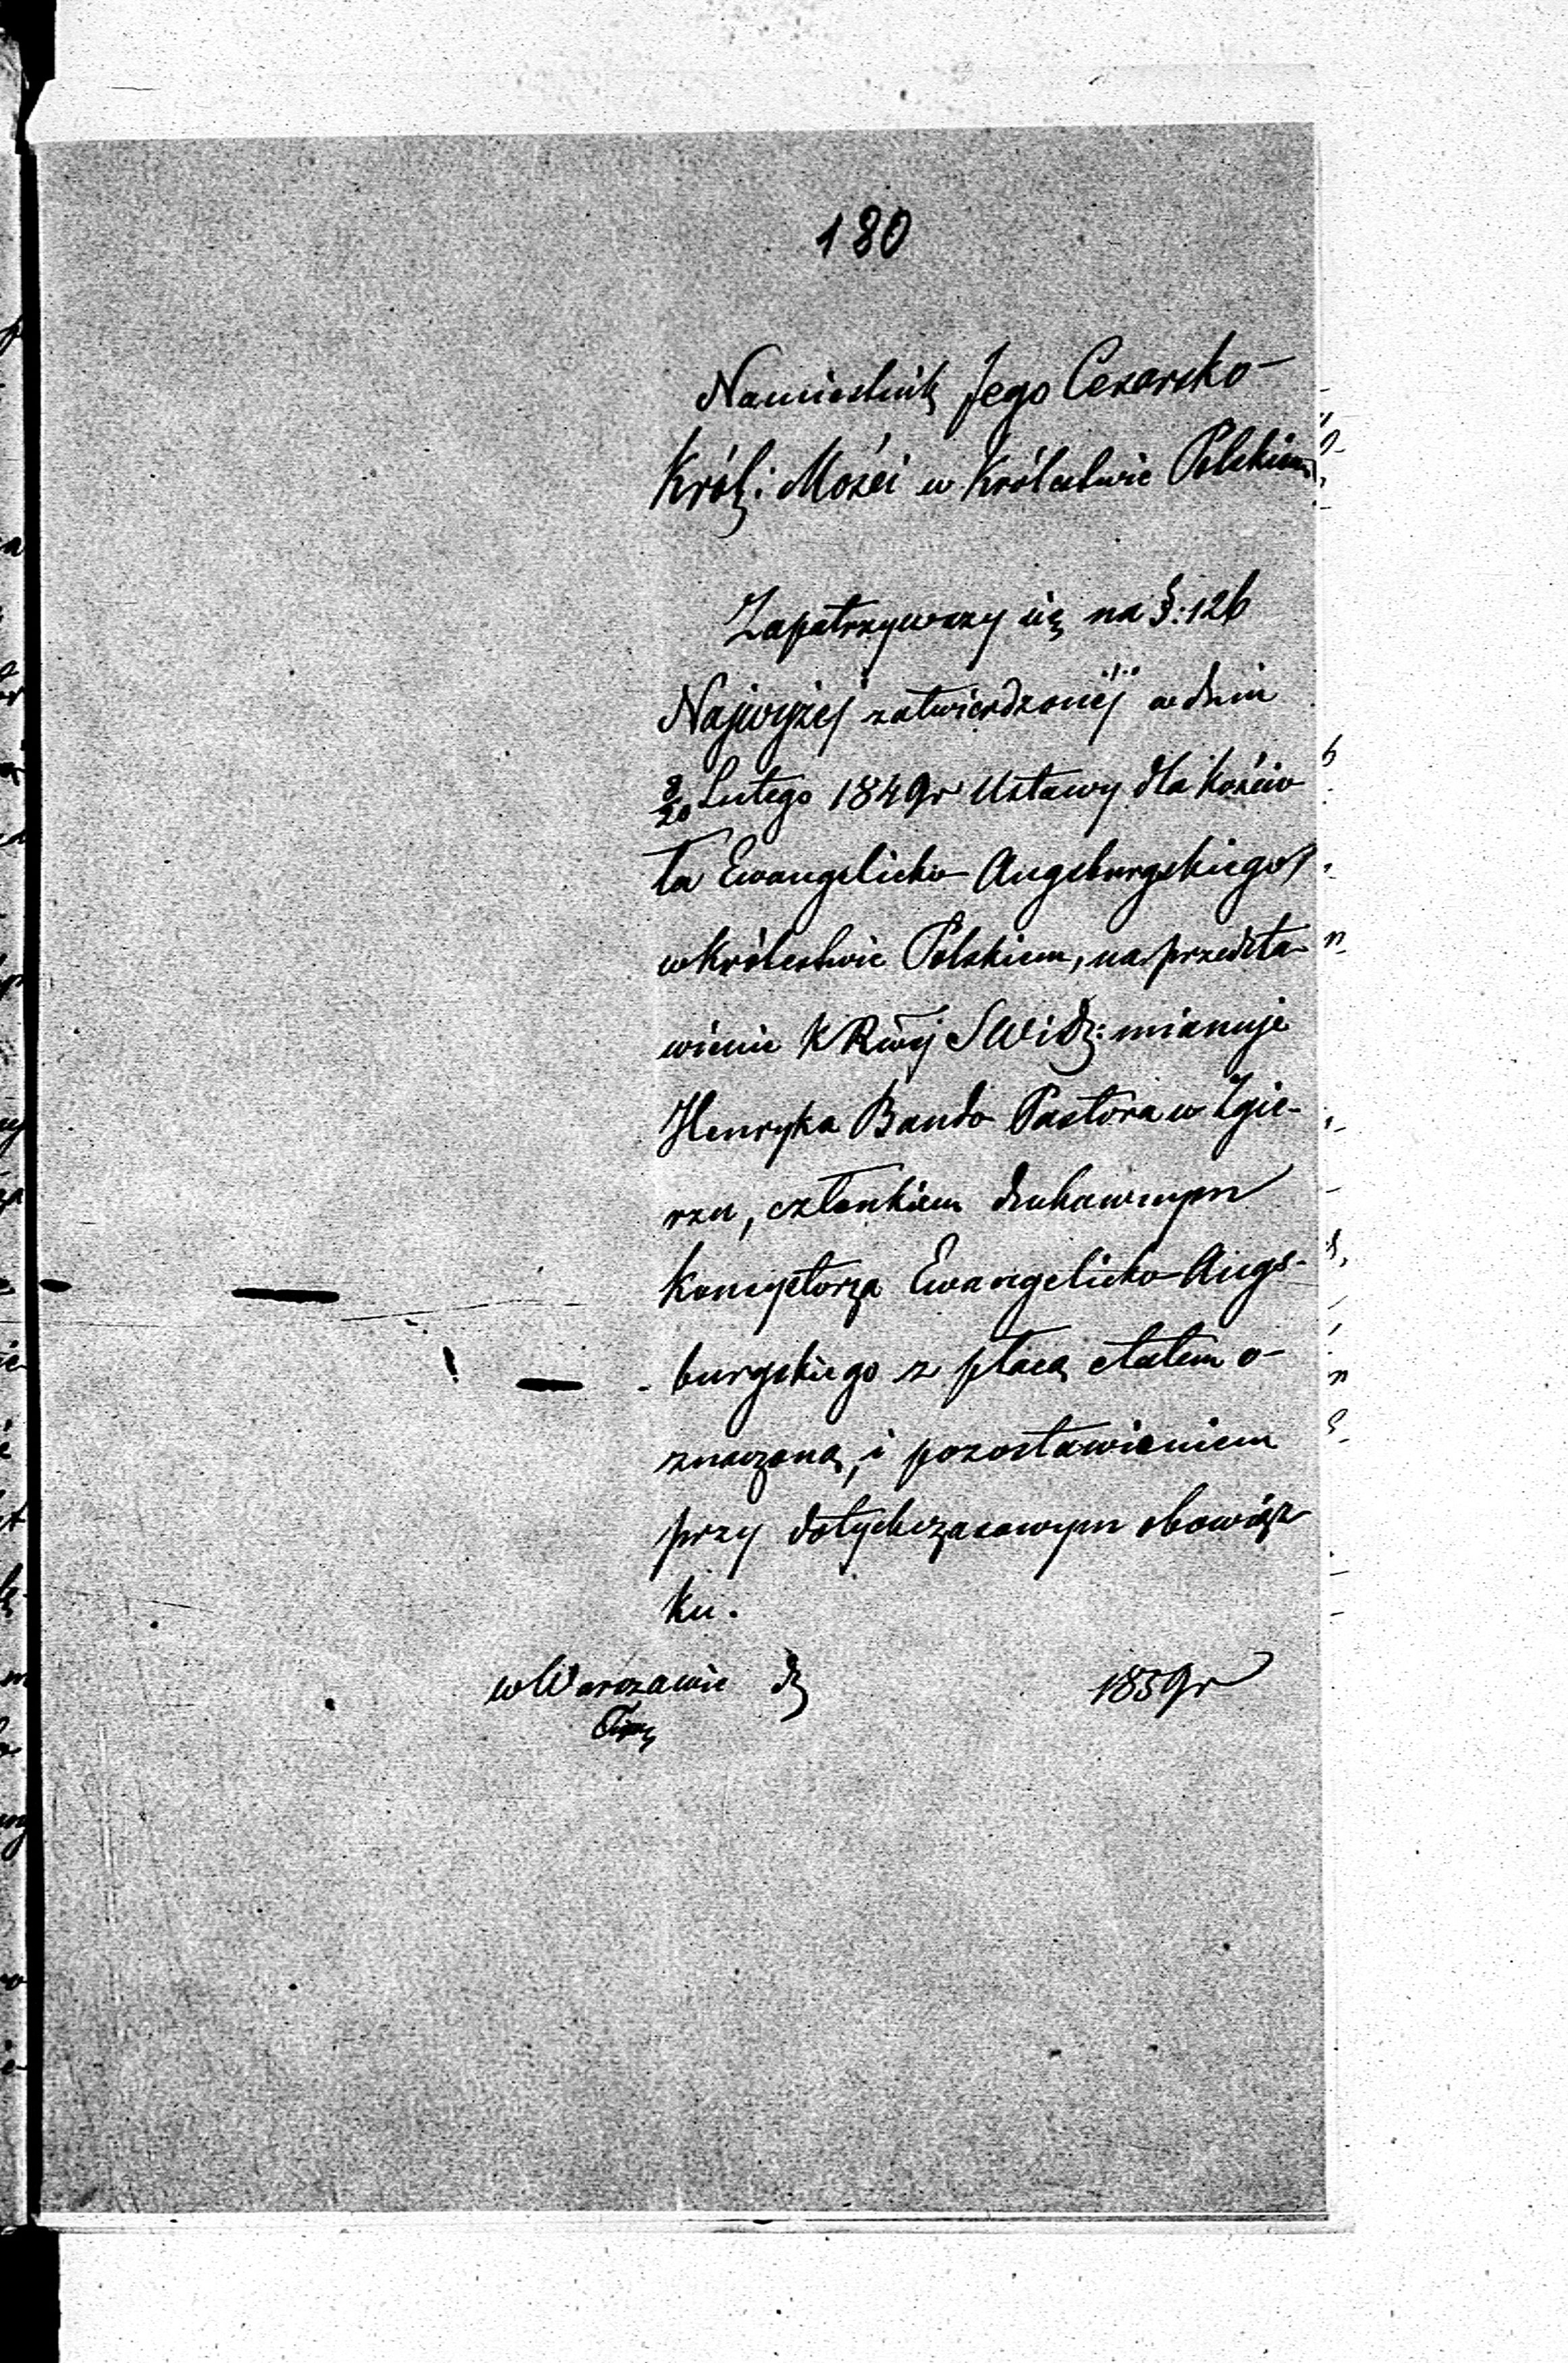 180
Namiestnik Jego Cesarsko-
Król: Mości w Królestwie Polskiem
Zapatrzywszy się na §: 126
Najwyżej zatwierdzonéj w dniu
8/20 Lutego 1849r Ustawy dla Kościo-
ła Ewangelicko-Augsburgskiego
w Królestwie Polskiem, na przedsta-
wienie K R SW i D: mianuje
Henryka Bando Pastora w Zgie-
rzu, członkiem duchownym
Konsystorza Ewangelicko-Augs-
burgskiego z płacą etatem o-
znaczoną, i pozostawieniem
przy dotychczasowym obowiąz-
ku.
w Warszawie d 1859r